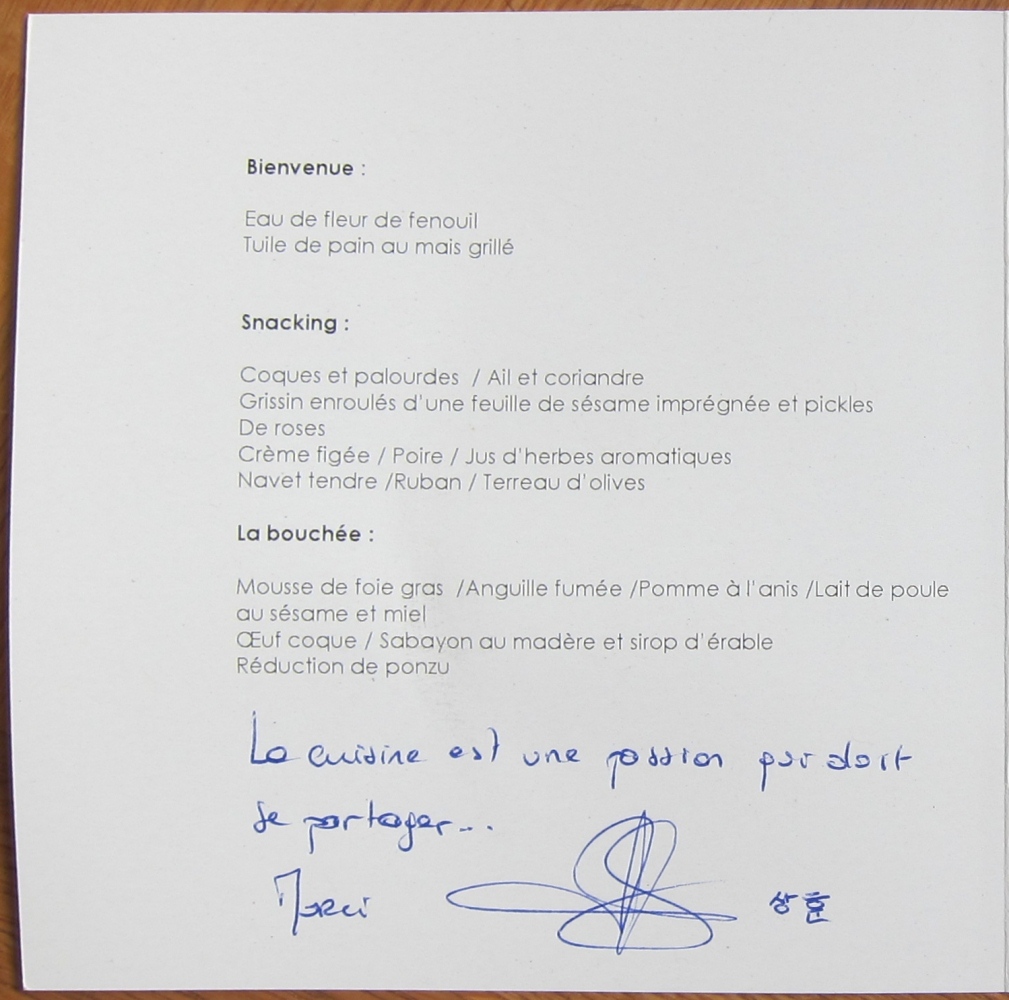 Bienvenue :
Eau de fleur de fenouil
Tuile de pain au mais grillé
Snacking :
Coques et palourdes / Ail et coriandre
Grissin enroulés d'une feuille de sésame imprégnée et pickles
De roses
Crème figée / Poire / Jus d'herbes aromatiques
Navet tendre /Ruban / Terreau d'olives
La bouchée :
Mousse de foie gras /Anguille fumée /Pomme à l'anis /Lait de poule
au sésame et miel
Œuf coque / Sabayon au madère et sirop d'érable
Réduction de ponzu
La cuisine est une passion qui doit
se partager...
Merci
상훈